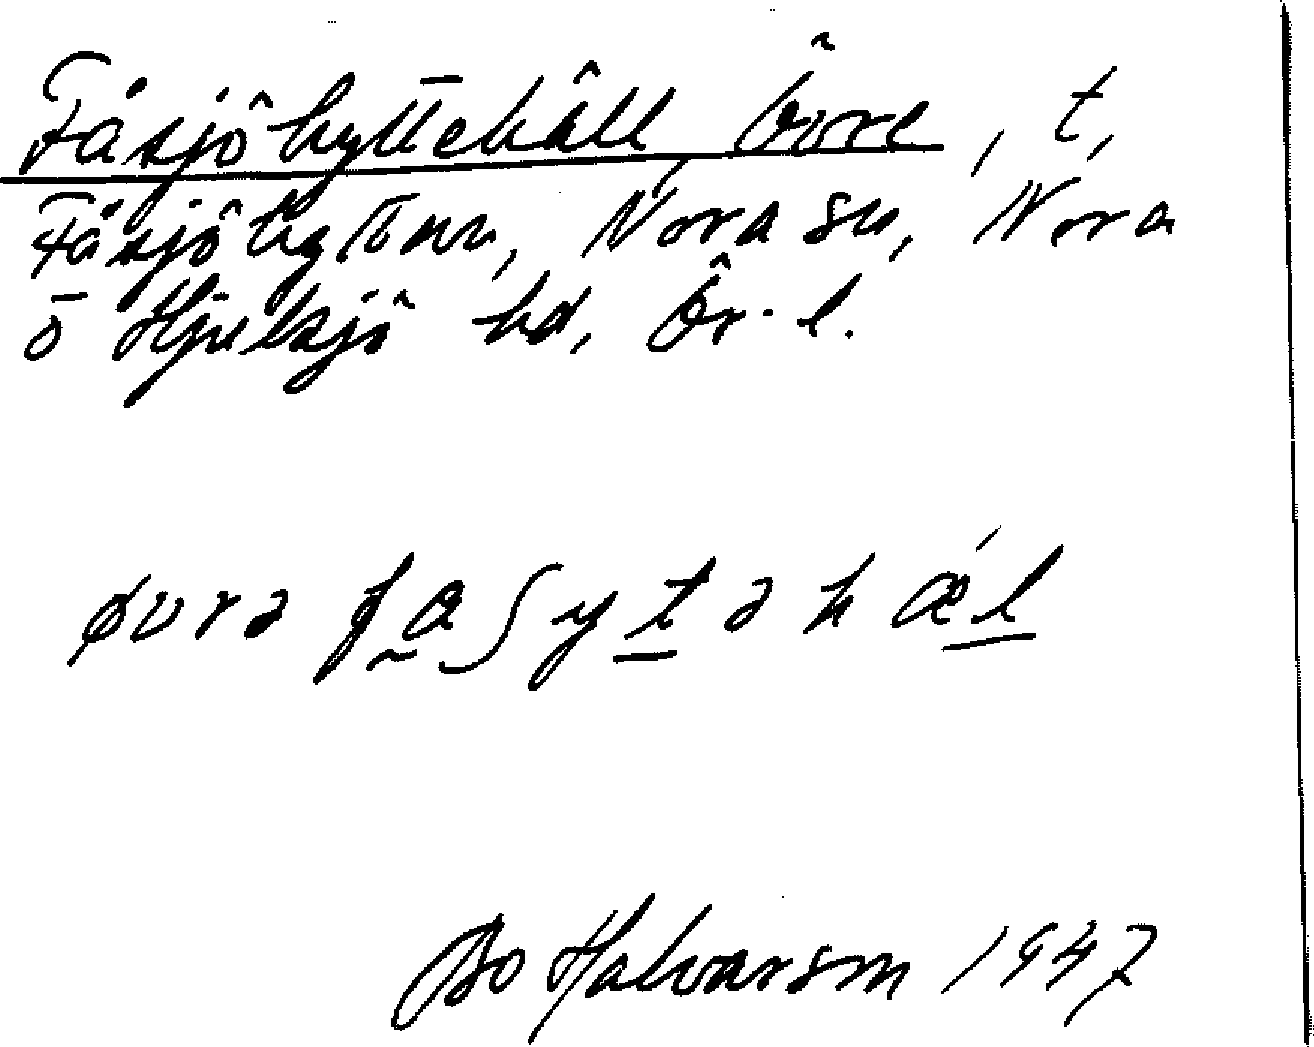 Fåsjöhyttehäll, övre, t,
Fåsjöhyttan, Nora sn, Nora
o Hjulsjö hd, Ör. l.
øvrə fɑʃytəhǽl
Bo Halvarson 1947